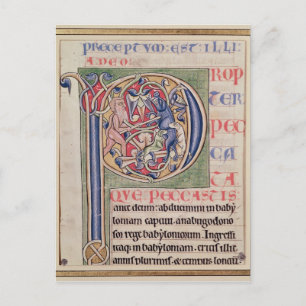 PRECEPTUM:EST:ILLI:
A DEO:
PROP
TER
PEC
CA
TA
QVE PECCASTIS
ante deum: abducimini in baby
loniam captiui anabugodo
sor rege babyloniorum. Ingressi
itaq in babyloniam. eritis illic
annis plurimis & temporib longis